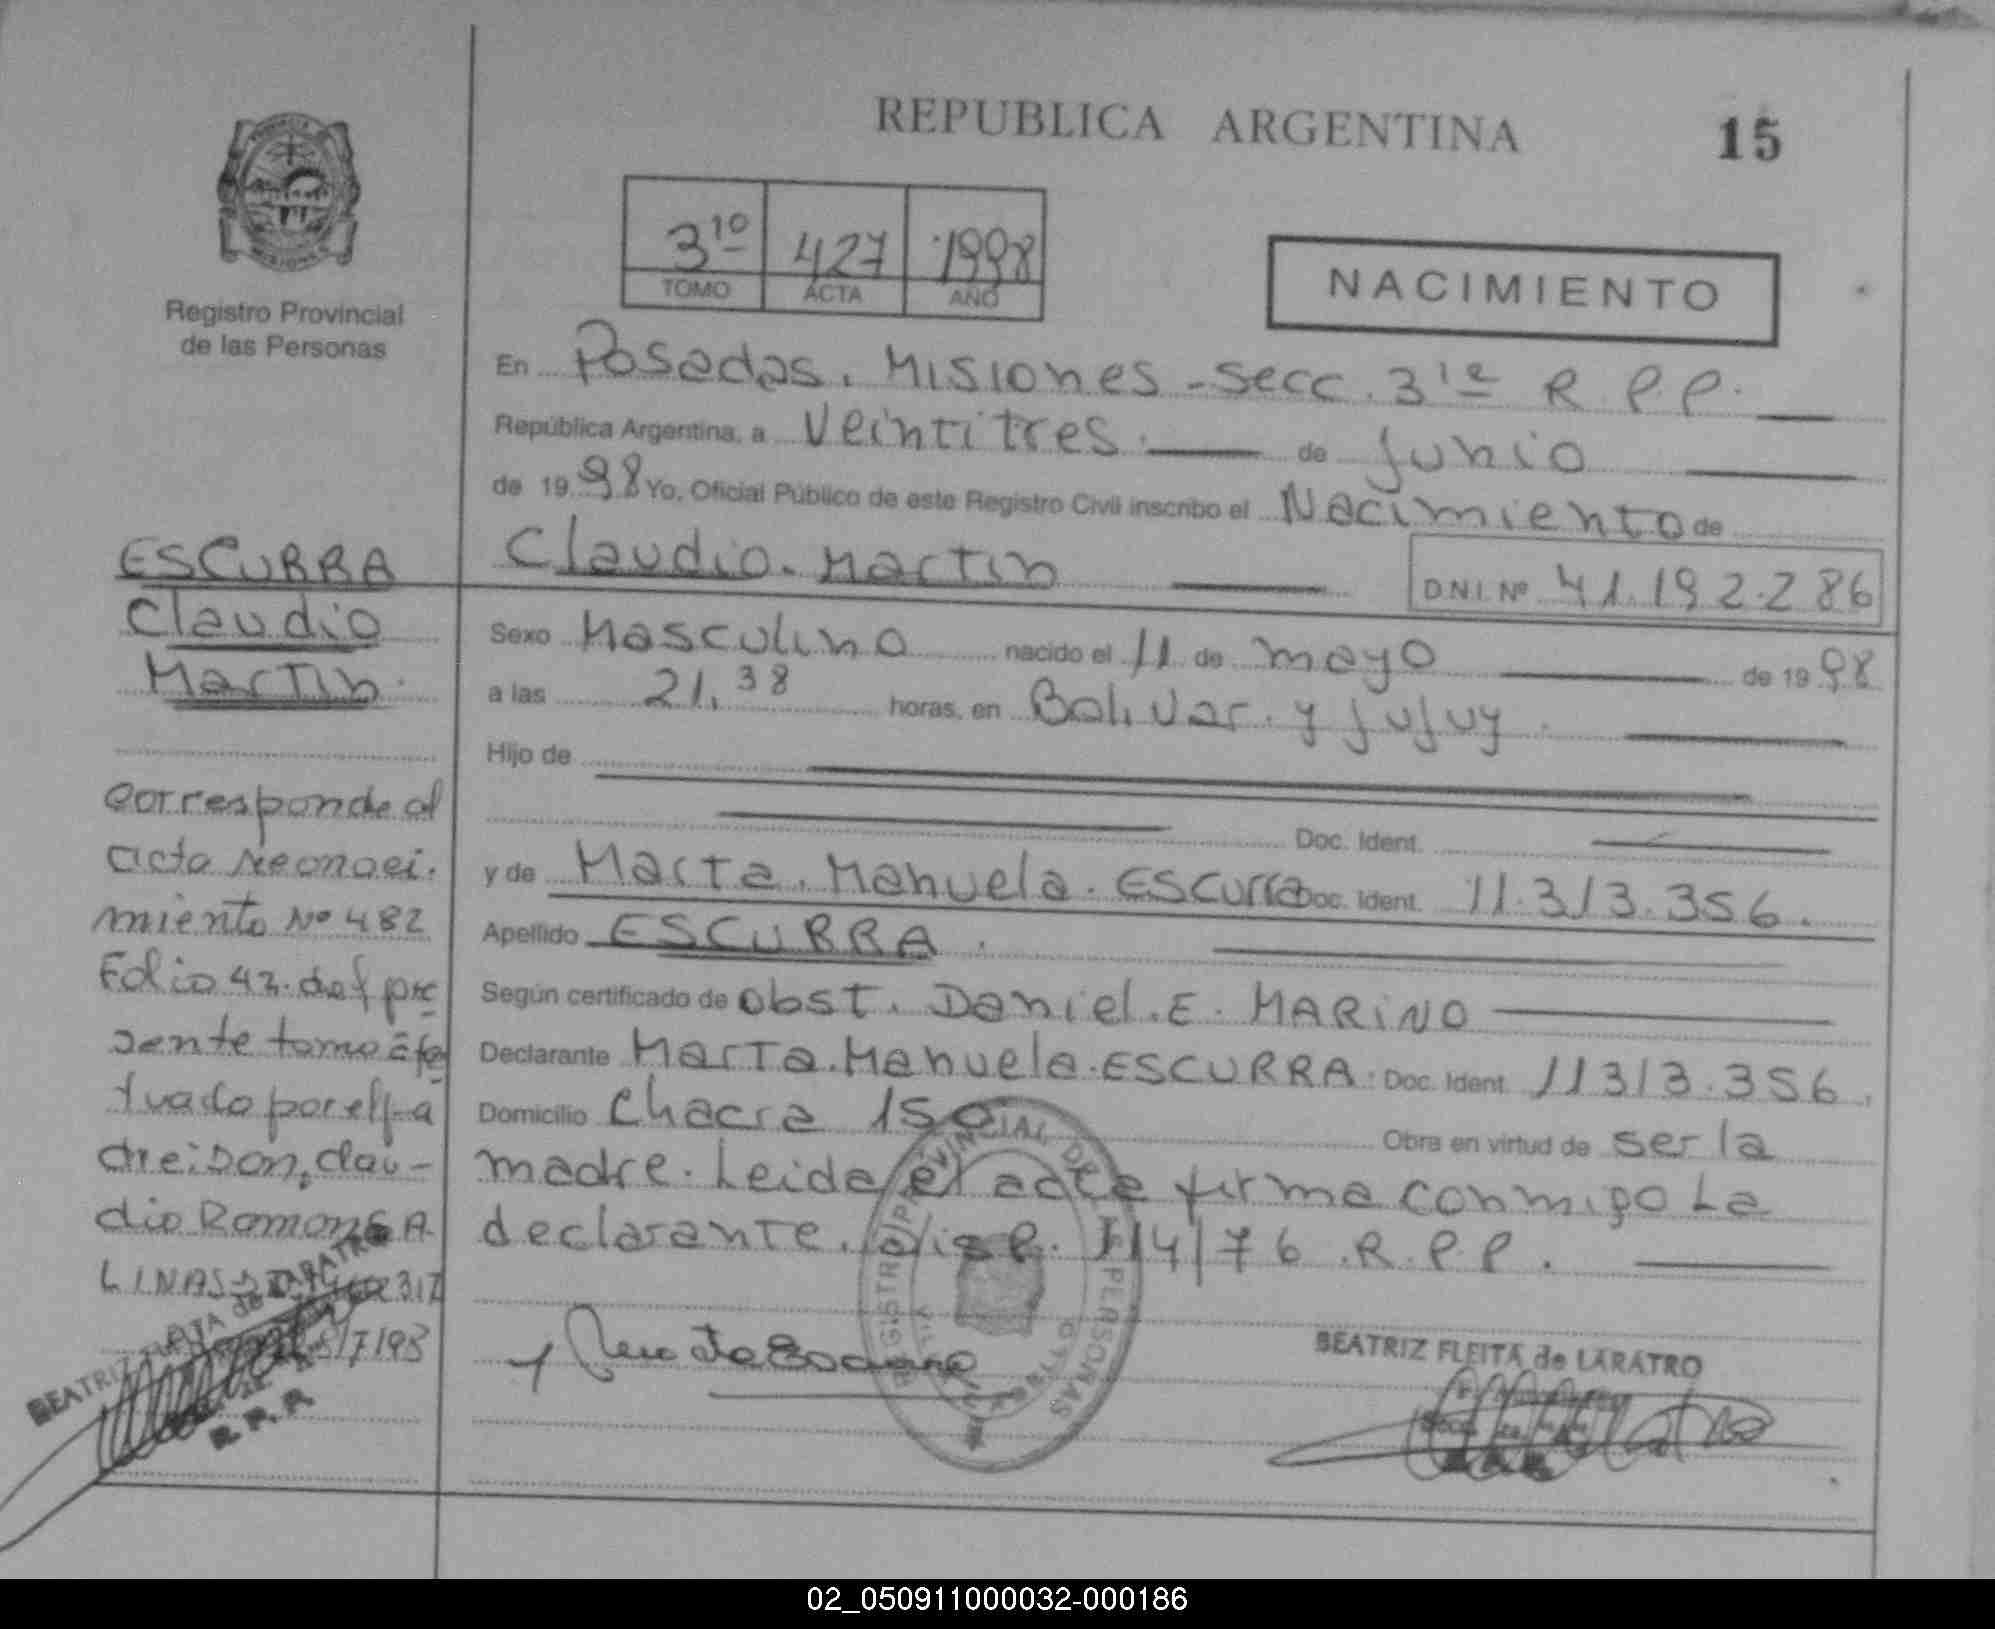 REPUBLICA ARGENTINA
15
3ro
427
1998
TOMO
ACTA
AÑO
NACIMIENTO
Registro Provincial
de las Personas
En Posadas. Misiones - secc. 3ra R.P.P.
República Argentina, a veintitres de junio
de 1998 Yo, Oficial Público de este Registro Civil inscribo el Nacimiento de
Claudio. Martin
DNI. Nº 41.192.286
Sexo Masculino nacido el 11 de mayo de 1998
a las 21.38 horas, en Bolivar. y jujuy.
Hijo de
Doc. Ident.
y de Marta. Manuela. Escurra Doc. Ident. 11.313.356.
Apellido ESCURRA.
Según certificado de obst. Daniel. E. MARINO
Declarante Marta. Manuela. ESCURRA. Doc. Ident. 11313.356.
Domicilio Chacra 150 Obra en virtud de ser la
madre. Leida el acta firma conmigo La
declarante. Disp. 114/76. R.P.P.
BEATRIZ FLEITA de LARATRO
ESCURRA
Claudio
Martin.
corresponde al
acta
miento Nº 482
Folio 42. del pre
sente tomo efec
tuado por el pa
dre: Don, Clau-
dio Ramon SA
LINAS
BEATRIZ FLEITA de LARATRO
REGISTRO PROVINCIAL DE LAS PERSONAS
02_050911000032-000186